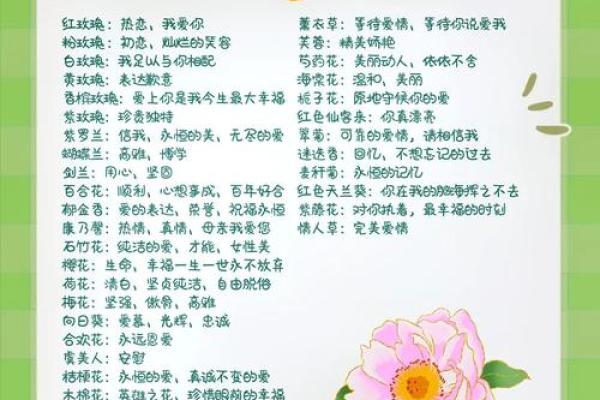 红玫瑰：热恋、我爱你
粉玫瑰：初恋、灿烂的笑容
白玫瑰：我足以与你相配
黄玫瑰：表达歉意
香槟玫瑰：爱上你是我今生最大幸福
紫玫瑰：珍贵独特
紫罗兰：信我、永恒的美、无尽的爱
蝴蝶兰：高雅、博学
剑兰：用心、坚固
百合花：顺利、心想事成、百年好合
郁金香：爱的表达、荣誉、祝福永恒
康乃馨：热情、真情、母亲我爱您
石竹花：纯洁的爱、才能、女性美
樱花：生命、幸福一生一世永不放弃
荷花：清白、坚贞纯洁、自由脱俗
梅花：坚强、傲骨、高雅
向日葵：爱慕、光辉、忠诚
合欢花：永远恩爱
虞美人：安慰
桔梗花：永恒的爱、真诚不变的爱
木棉花：英雄之花、珍惜眼前的幸福
薰衣草：等待爱情、等待你说爱我
芙蓉：精美娇艳
芍药花：美丽动人、依依不舍
海棠花：温和、美丽
栀子花：原地守候你的爱
红色仙客来：你真漂亮
翠菊：可靠的爱情、请相信我
迷迭香：回忆、不想忘记的过去
麦秆菊：永恒的记忆
红色天竺葵：你在我的脑海挥之不去
紫藤花：对你执着，最幸福的时刻
情人草：完美爱情